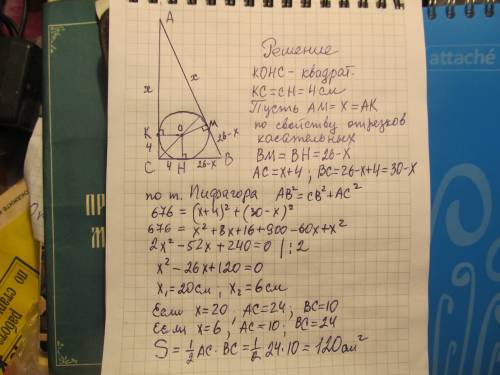 A
x
x
K
O
M
4
26-x
C
4
H
26-x
B
Решение
КОНС - квадрат.
KC = CH = 4 см
Пусть AM = X = AK
по свойству отрезков
касательных
BM = BH = 26-X
AC = x+4 ; BC = 26-x+4 = 30-x
по т. Пифагора AB² = CB² + AC²
676 = (x+4)² + (30-x)²
676 = x² + 8x + 16 + 900 - 60x + x²
2x² - 52x + 240 = 0 | : 2
x² - 26x + 120 = 0
x₁ = 20 см ; x₂ = 6 см
Если x = 20 , AC = 24 ; BC = 10
Если x = 6 , AC = 10 ; BC = 24
S = ½ AC · BC = ½ · 24 · 10 = 120 см²
attaché